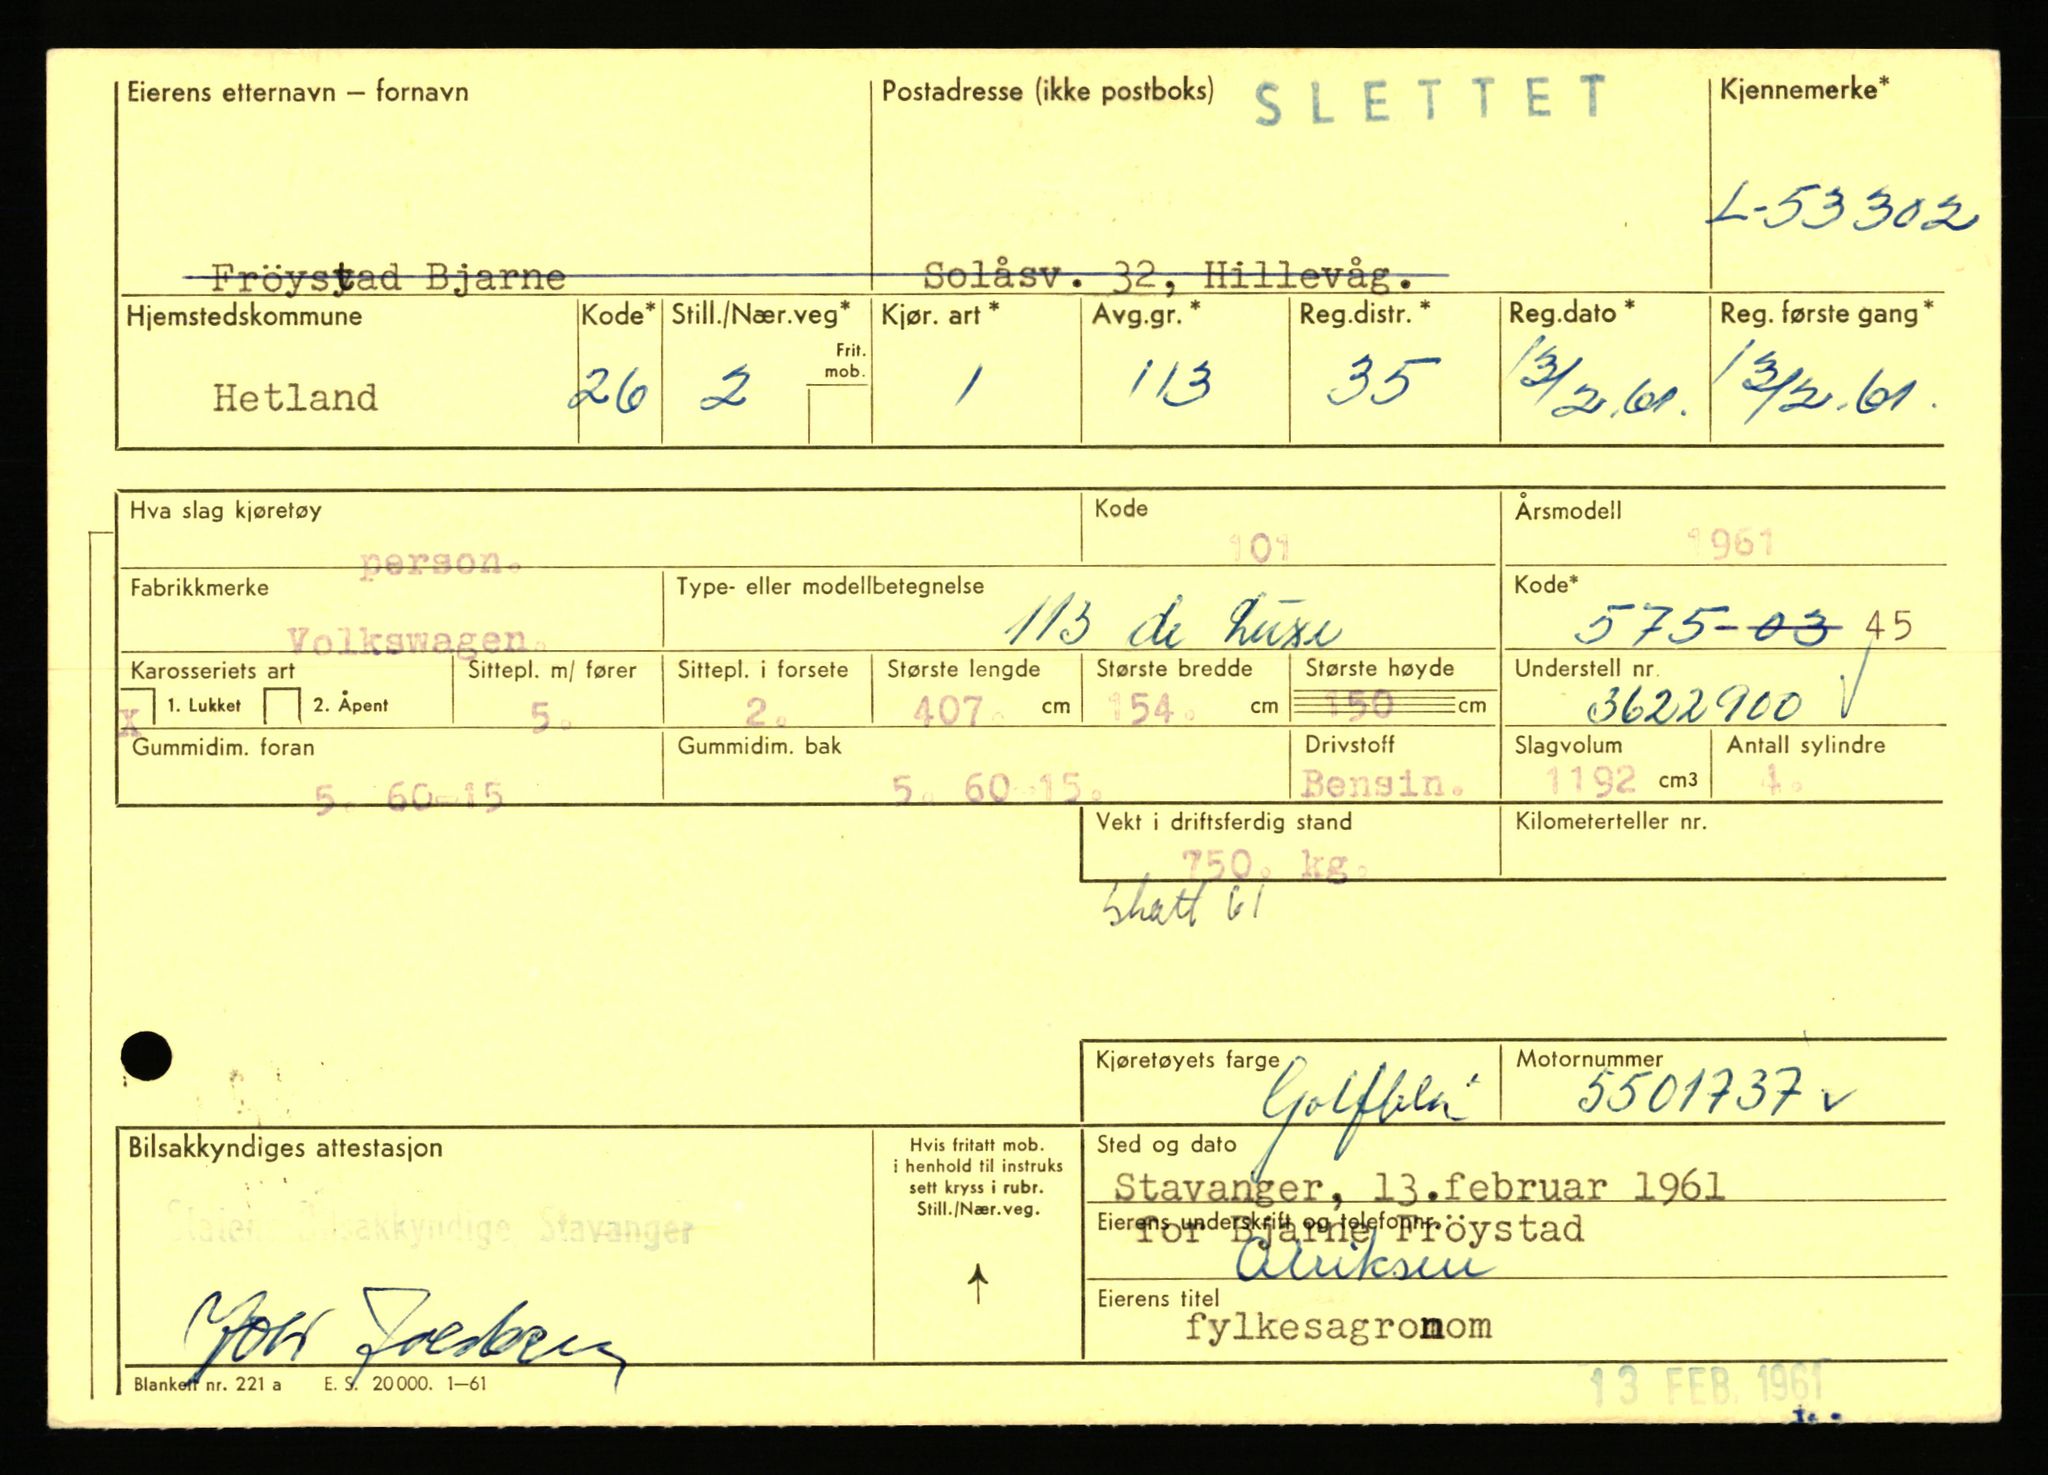 Eierens etternavn — fornavn
Postadresse (ikke postboks)
SLETTET
Kjennemerke*
L-53302
Fröystad Bjarne
Solåsv. 32, Hillevåg.
Hjemstedskommune
Kode*
Still./Nær.veg*
Frit. mob.
Kjør. art*
Avg.gr.*
Reg.distr.*
Reg.dato*
Reg. første gang*
Hetland
26
2
1
113
35
13/2.61.
13/2.61.
Hva slag kjøretøy
Kode
Årsmodell
person.
101
1961
Fabrikkmerke
Type- eller modellbetegnelse
Kode*
Volkswagen.
113 de Luxe
575-03 45
Karosseriets art
Sittepl. m/ fører
Sittepl. i forsete
Største lengde
Største bredde
Største høyde
Understell nr.
X 1. Lukket 2. Åpent
5.
2.
407. cm
154. cm
150 cm
3622900
Gummidim. foran
Gummidim. bak
Drivstoff
Slagvolum
Antall sylindre
5. 60-15
5. 60-15.
Bensin.
1192 cm3
4.
Vekt i driftsferdig stand
Kilometerteller nr.
750. kg.
skatt 61
Kjøretøyets farge
Motornummer
Golfblå
5501737 v
Bilsakkyndiges attestasjon
Hvis fritatt mob.
i henhold til instruks
sett kryss i rubr.
Still./Nær.veg.
Sted og dato
Stavanger, 13.februar 1961
Statens Bilsakkyndige Stavanger
Eierens underskrift og telefonnr.
for Bjarne Fröystad
Eierens titel
fylkesagronom
Blankett nr. 221 a E. S. 20 000. 1—61
13 FEB. 1961